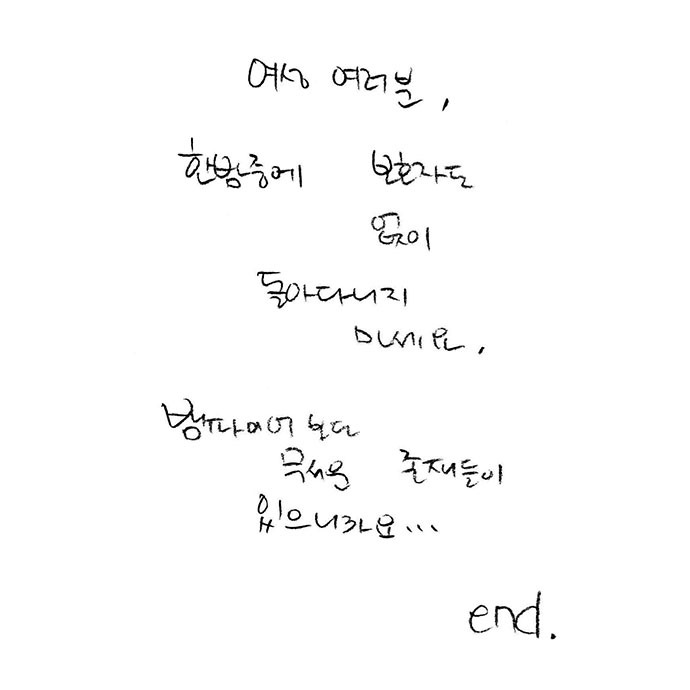 여성 여러분,
한밤중에 보호자도
없이
돌아다니지
마세요.
뱀파이어보단
무서운 존재들이
있으니까요...
end.